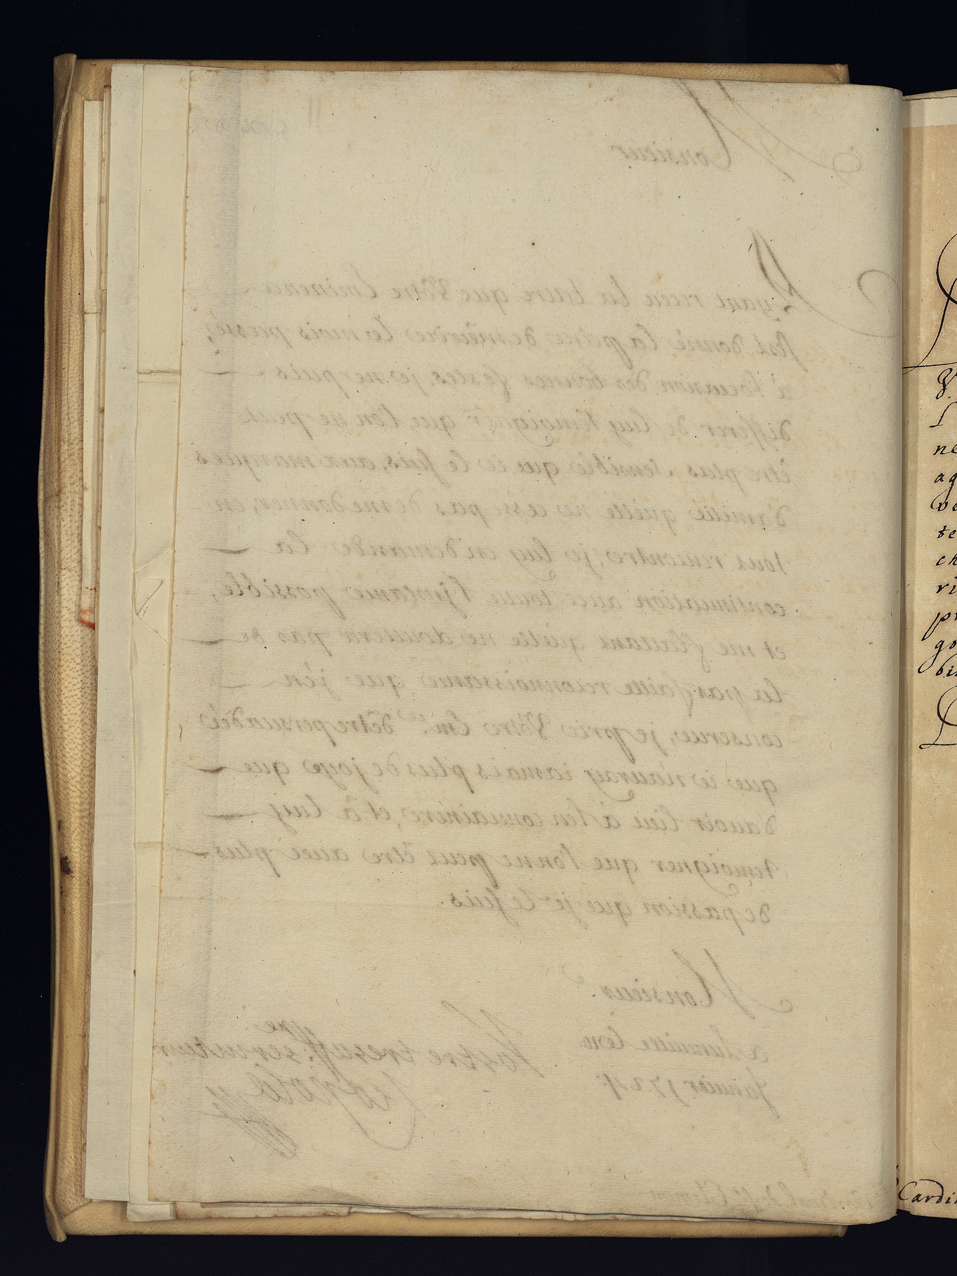 Monsieur
Ayant receu la lettre que Vôtre Eminence
s'est donnée la peine de m'ecrire le mois passé,
à l'occasion des bonnes festes, je ne puis
differer de luy temoigner que l'on ne peut
être plus sensible que ie le suis, aux marques
d'amitié qu'elle ne cesse pas de me donner, en
tous rencontre, je luy en demande la
continuation avec toute l'jnstance possible,
et me flattant qu'elle ne doutera pas de
la parfaitte reconnoissance que j'en
conserue, je prie Vôtre Em.ce d'être persuadée
que ie n'auray iamais plus de joye que
d'auoir lieu à l'en conuaincre, et, à luy
temoigner que l'on ne peut être auec plus
de passion que je le suis.
Monsieur
a Luneuille le
Januier 1724.
Vostre tres aff.ne seruiteur
Leopold
V.
L
ne
ag
ve
te
ch
ri
pr
go
bi
Cardi